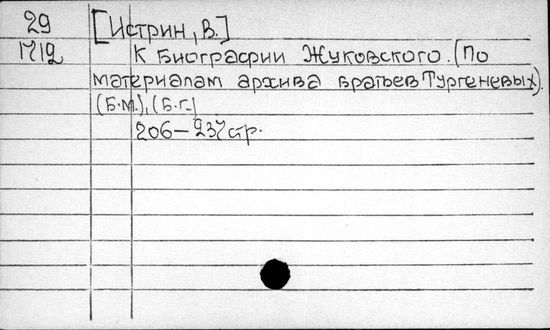 29 [Истрин, В.]
1712 К биографии Жуковского. (По
материалам архива братьев Тургеневых).
(Б.м.), (Б.г.)
206-237 стр.